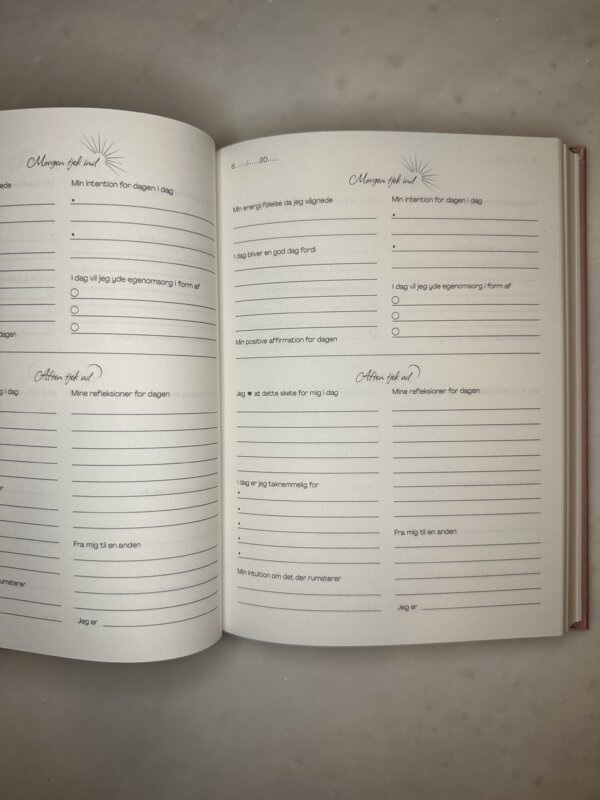 Morgen tjek ind
Min intention for dagen i dag
I dag vil jeg yde egenomsorg i form af
dagen
Aften tjek ud
g i dag
Mine refleksioner for dagen
Fra mig til en anden
rumsterer
Jeg er
d....../......20......
Morgen tjek ind
Min energi/følelse da jeg vågnede
I dag bliver en god dag fordi
Min positive affirmation for dagen
Min intention for dagen i dag
I dag vil jeg yde egenomsorg i form af
Aften tjek ud
Jeg ♥ at dette skete for mig i dag
I dag er jeg taknemmelig for
Min intuition om det der rumsterer
Mine refleksioner for dagen
Fra mig til en anden
Jeg er